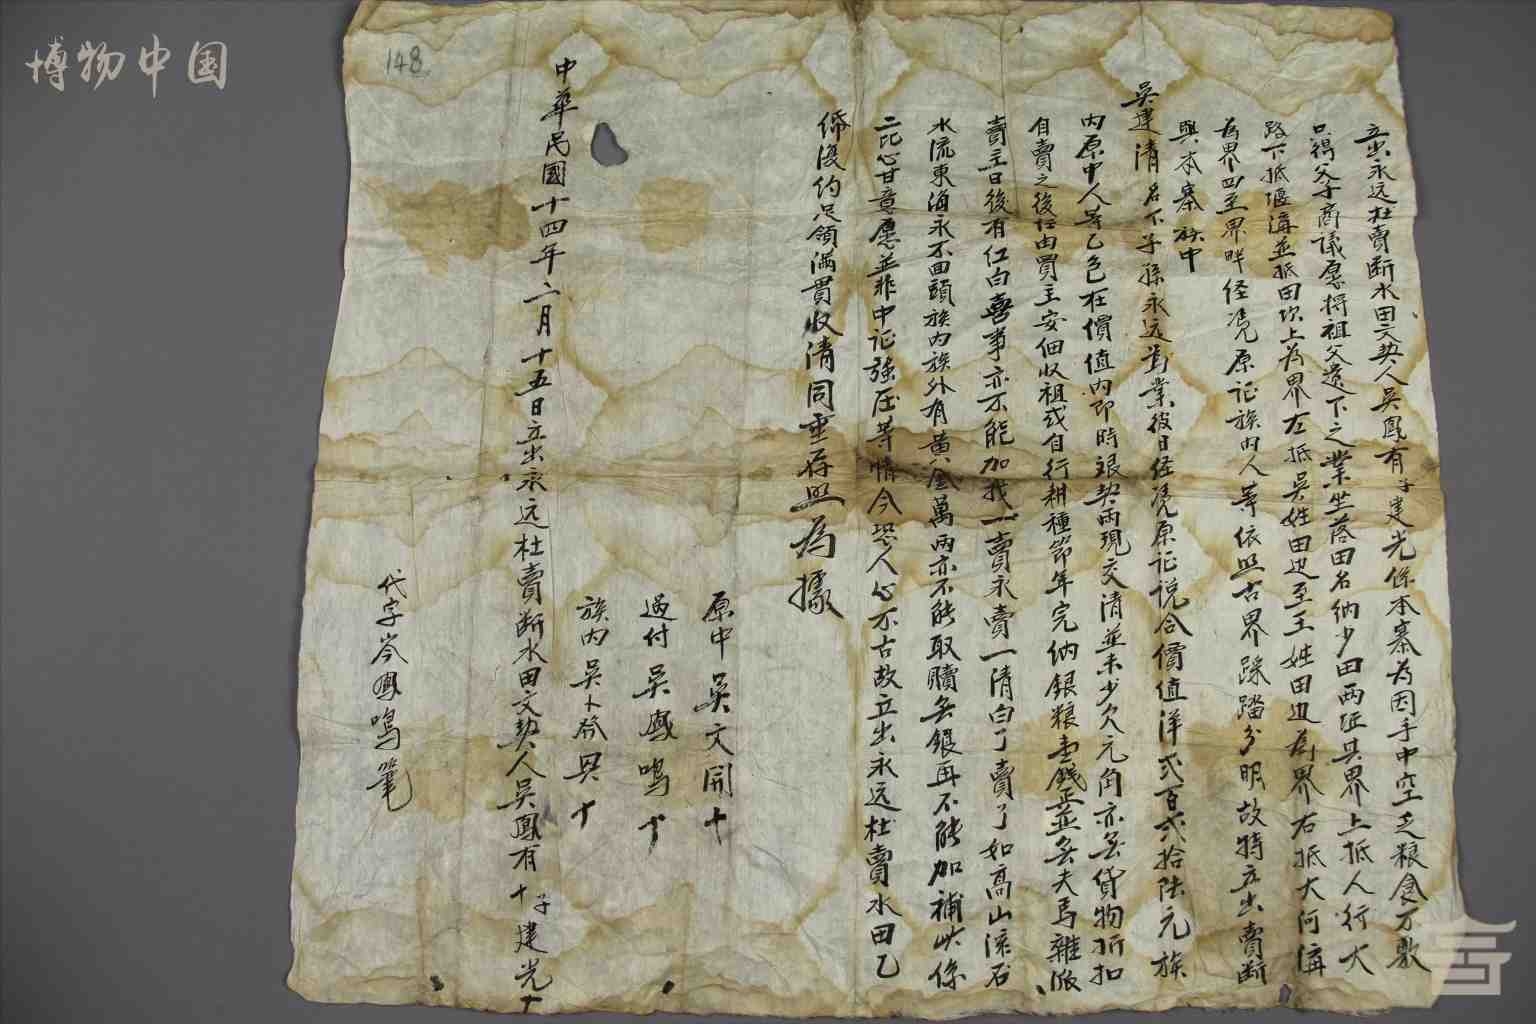 博物中国
148
立出永远杜賣断水田文契人吴鳳有子建光係本寨為因手中空乏粮食不敷
只得父子商議愿将祖父遗下之業坐落田名纳少田两坵其界上抵人行大
路下抵堰溝並抵田坎上為界左抵吴姓田边至王姓田边為界右抵大河溝
為界四至界畔经凭原证族内人等依照古界踩踏分明故特立出賣断
與本寨族中
吴建清名下子孫永远為業彼日经凭原证说合價值洋弐百弐拾陆元族
内原中人等乙包在價值内即時银契两现交清並未少欠元角亦無貸物折扣
自賣之後任由買主安佃收租或自行耕種節年完纳銀粮壹錢正並無夫馬雜派
賣主日後有红白喜事亦不能加找一賣永賣一清白了賣了如高山滚石
水流東海永不回頭族内族外有黄金萬两亦不能取贖無銀再不能加補此係
二比心甘意愿並非中证强压等情今恐人心不古故立出永远杜賣水田乙
纸復约足领满贯收清同重存照為據
原中吴文開十
过付吴鳳鸣十
族内吴卜發具十
中華民國十四年二月十五日立出永远杜賣断水田文契人吴鳳有十子建光十
代字岑鳳鸣筆